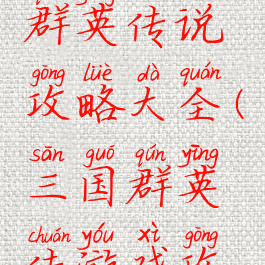 群英传说
gōng lüè dà quán
攻略大全(
sān guó qún yīng
三国群英
chuán yóu xì gōng
传游戏攻